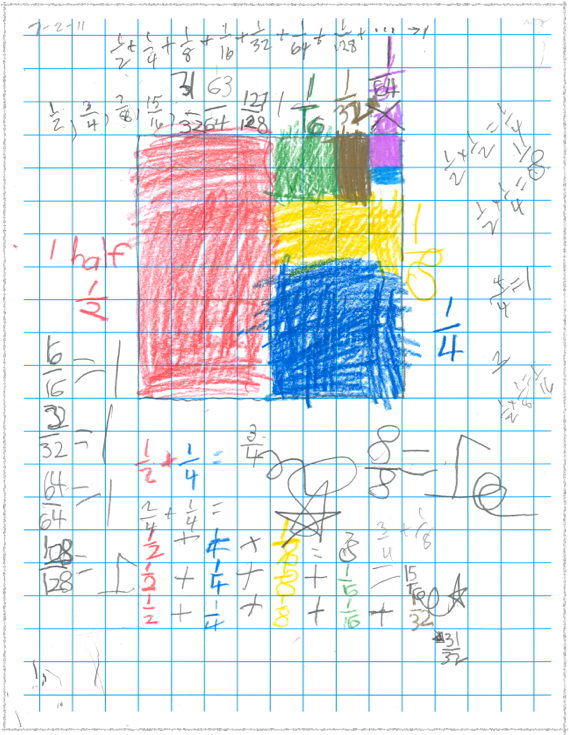 7-2-11
1/2 + 1/4 + 1/8 + 1/16 + 1/32 + 1/64 + 1/128 + ... → 1
1/2, 3/4, 7/8, 15/16, 31/32 63/64 127/128 1
1/16 1/32 1/64
1 half
1/2
1/8
1/4
4/4 = 1
16/16 = 1
32/32 = 1
64/64 = 1
128/128 = 1
1/2 + 1/4 = 3/4
8/8 = 1
2/4 + 1/4 =
3/4 + 1/8
1/2 + 1/4 + 1/8 = 7/8
1/2 + 1/4 + 1/8 + 1/16 = 15/16
1/2 + 1/4 + 1/8 + 1/16 + 1/32
= 31/32